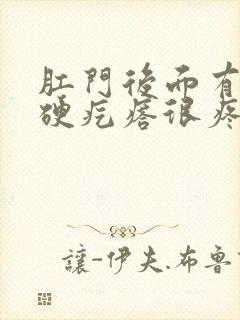 肛門後而有
硬疙瘩很疼
讓-伊夫·布魯